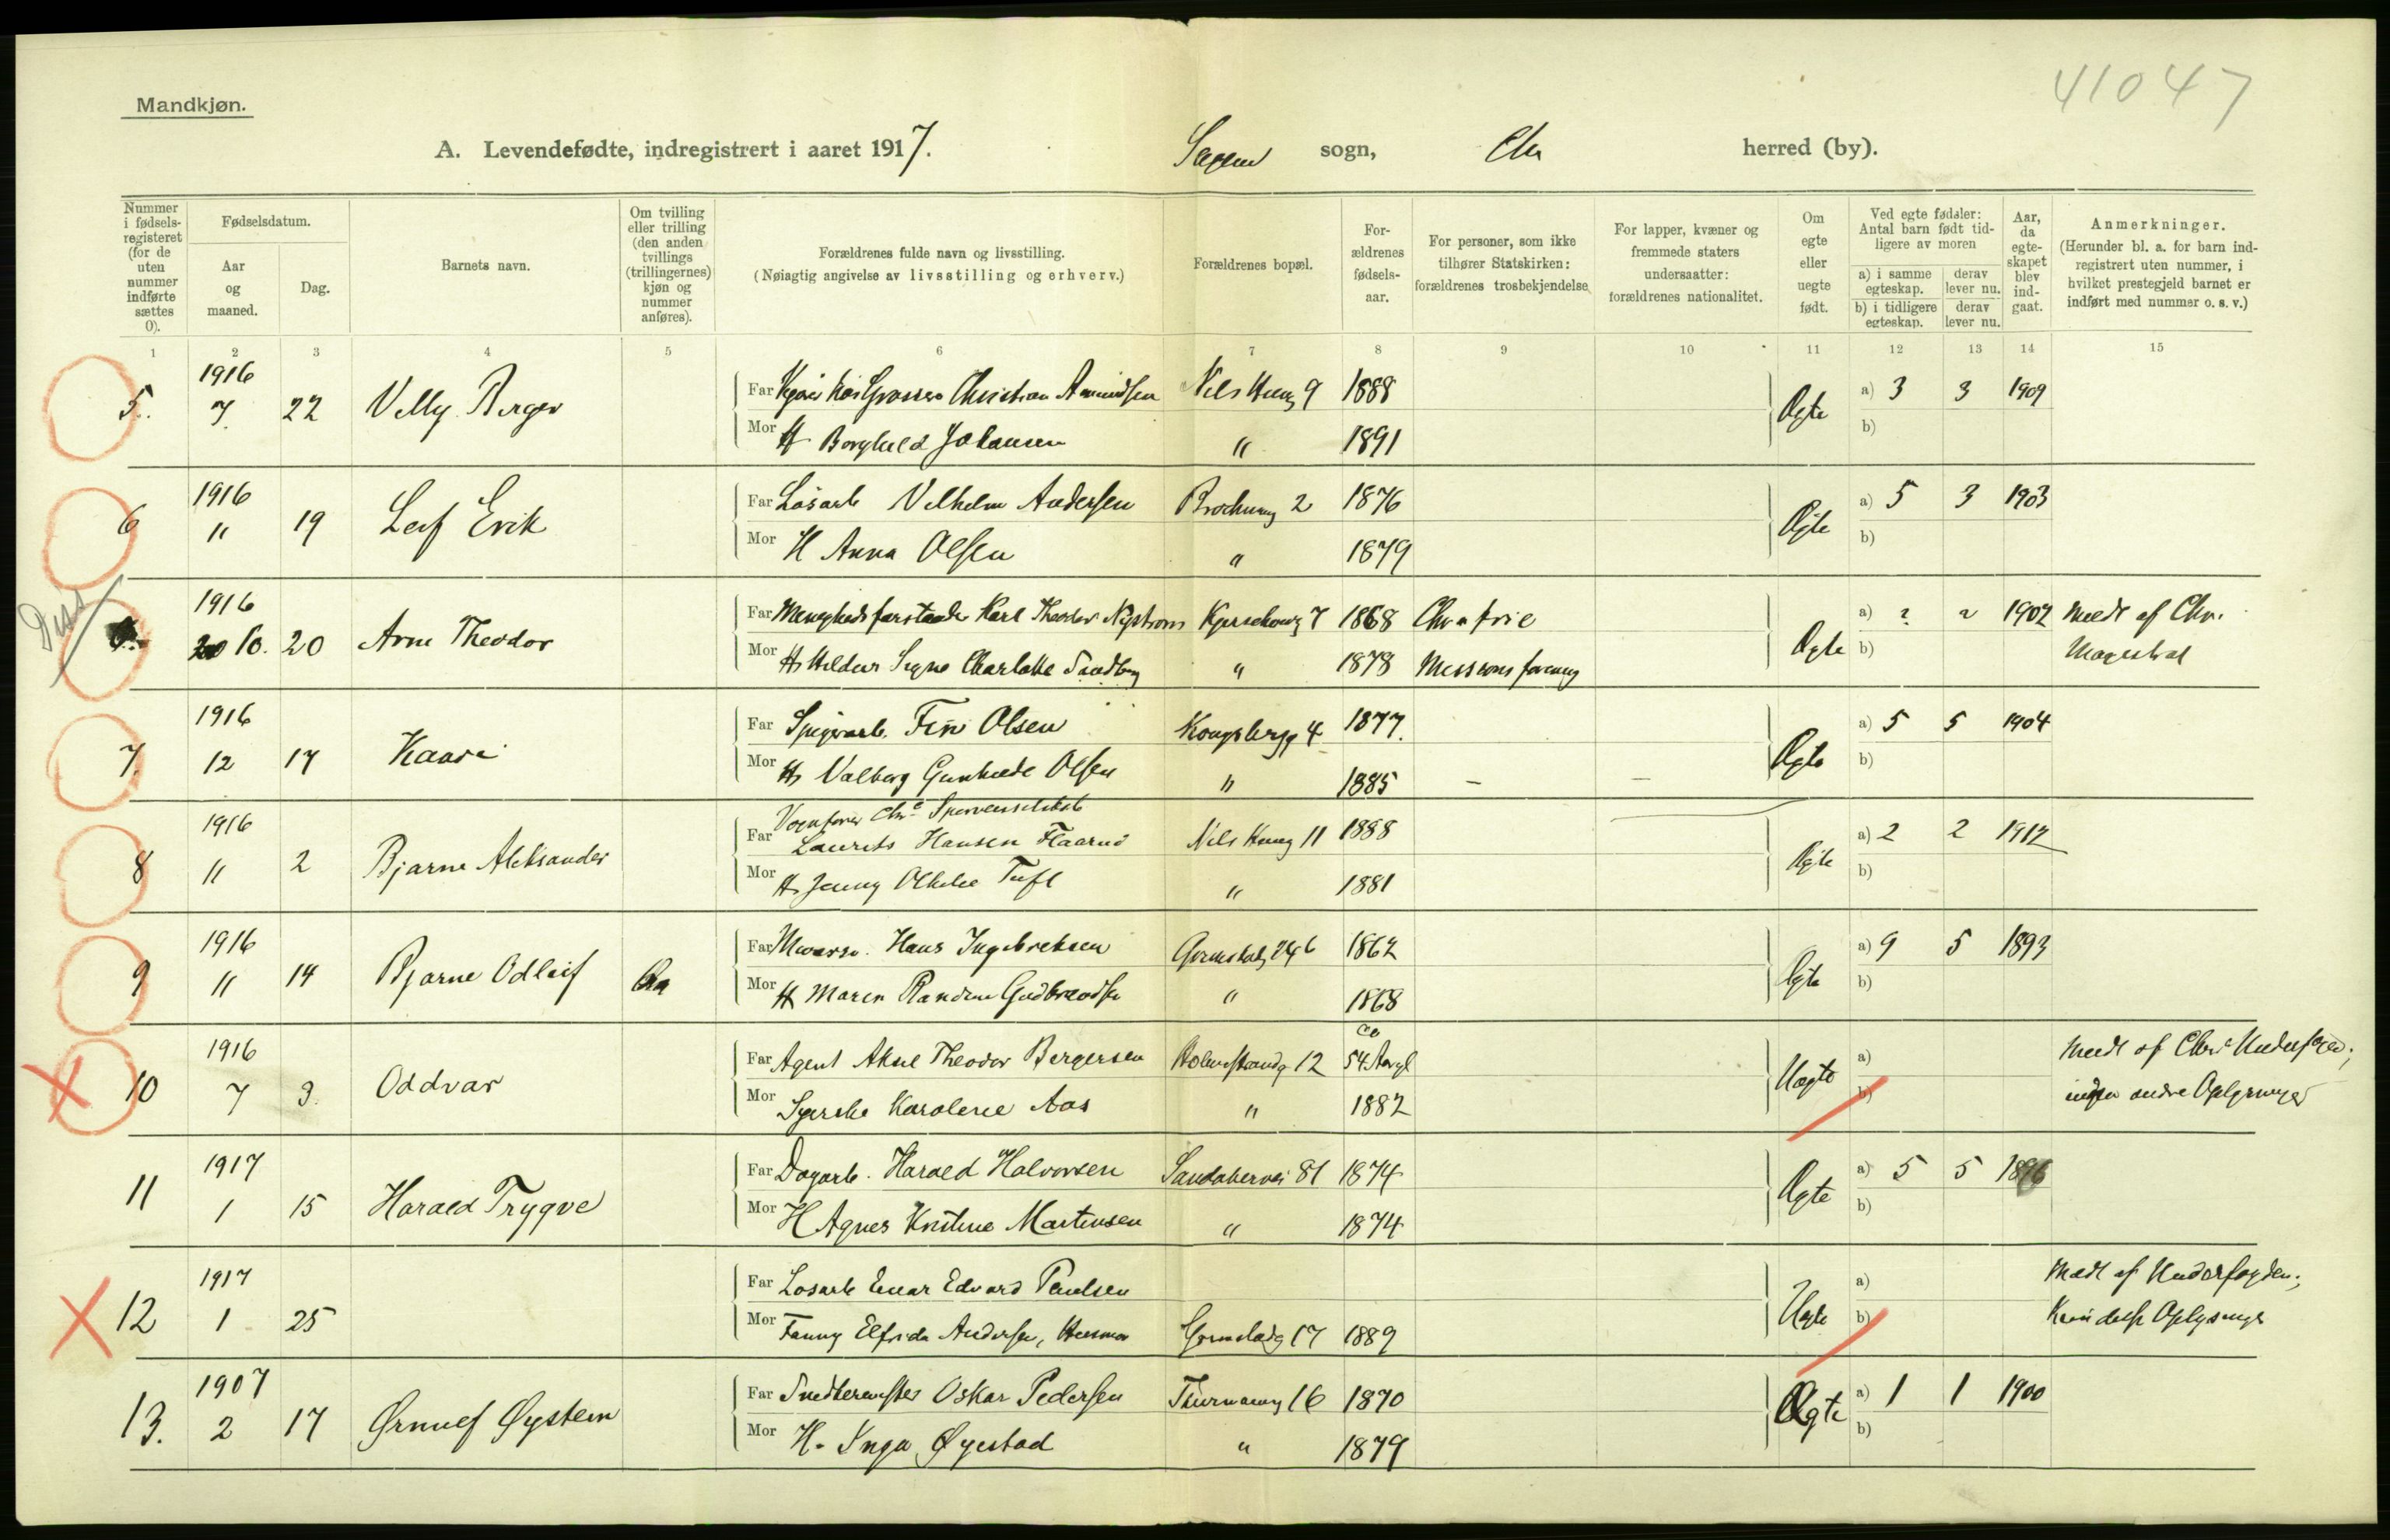 41047
Mandkjøn.
A. Levendefødte, indregistrert i aaret 1917. Sagene sogn, Chr herred (by).
Nummer i fødselsregisteret (for de uten nummer indførte sættes 0).
Fødselsdatum.
Aar og maaned.
Dag.
Barnets navn.
Om tvilling eller trilling (den anden tvillings (trillingernes) kjøn og nummer anføres).
Forældrenes fulde navn og livsstilling.
(Nøiagtig angivelse av livsstilling og erhverv.)
Forældrenes bopæl.
Forældrenes fødselsaar.
For personer, som ikke tilhører Statskirken: forældrenes trosbekjendelse.
For lapper, kvæner og fremmede staters undersaatter: forældrenes nationalitet.
Om egte eller uegte født.
Ved egte fødsler: Antal barn født tidligere av moren
a) i samme egteskap.
derav lever nu.
b) i tidligere egteskap.
derav lever nu.
Aar, da egteskapet blev indgaat.
Anmerkninger.
(Herunder bl. a. for barn indregistrert uten nummer, i hvilket prestegjeld barnet er indført med nummer o. s. v.)
1 2 3 4 5 6 7 8 9 10 11 12 13 14 15
1916
5. 7. 22 Villy Birger
Far Christian Amundsen Nils Huusg 9 1888
Mor H Borghild Johansen " 1891
Ægte a) 3 3 1909
b)
1916
6 11 19 Leif Erik
Far Løsarb Vilhelm Andersen Brochmg 2 1876
Mor H Anna Olsen " 1879
Ægte a) 5 3 1903
b)
Diss
1916
10. 20 Arne Theodor
Far Menighedsforstander Karl Theodor Nystrøm Kjerschowsg 7 1868 Chra frie
Mor H Hildur Signe Charlotte Sandberg " 1878 Missionsforening
Ægte a) 2 2 1902 Meldt af Chr.
b) Magistrat
1916
7. 12 17 Kaare
Far Spigerarb. Finn Olsen Kongsbergg 4 1877.
Mor H Valborg Gunhilde Olsen " 1885 — —
Ægte a) 5 5 1904
b)
1916
8 11 2 Bjarne Aleksander
Vognfører Chra Sporveisselskab
Far Laurits Hansen Flaarud Nils Huusg 11 1888
Mor H Jenny Othilie Tuft " 1881
Ægte a) 2 2 1912
b)
1916
9 11 14 Bjarne Odleif
Far Murarb. Hans Ingebretsen 1862
Mor H Maren Randine Gudbrandsen " 1868
Ægte a) 9 5 1893
b)
1916
10 7 3. Oddvar
Far Agent Aksel Theodor Bergersen Holmestrandg 12 ca 54 Aar gl
Mor Syerske Karoline Aas " 1882
Uægte a) Meldt af Chra Underfoged;
b) ingen andre Oplysninger
1917
11 1 15 Harald Trygve
Far Dagarb. Harald Halvorsen Sandakervei 81 1874
Mor H Agnes Kristine Martinsen " 1874
Ægte a) 5 5 1896
b)
1917
12 1 25
Far Løsarb Einar Edvard Paulsen
Mor Fanny Elfrida Andersen, Husmor 17 1889
Uægte a) Meldt af Underfogden;
b) Kun disse Oplysninger
1907
13. 2 17 Ørnulf Øystein
Far Snedkermester Oskar Pedersen Thurmannsg 16 1870
Mor H. Inga Øyestad " 1879
Ægte a) 1 1 1900
b)